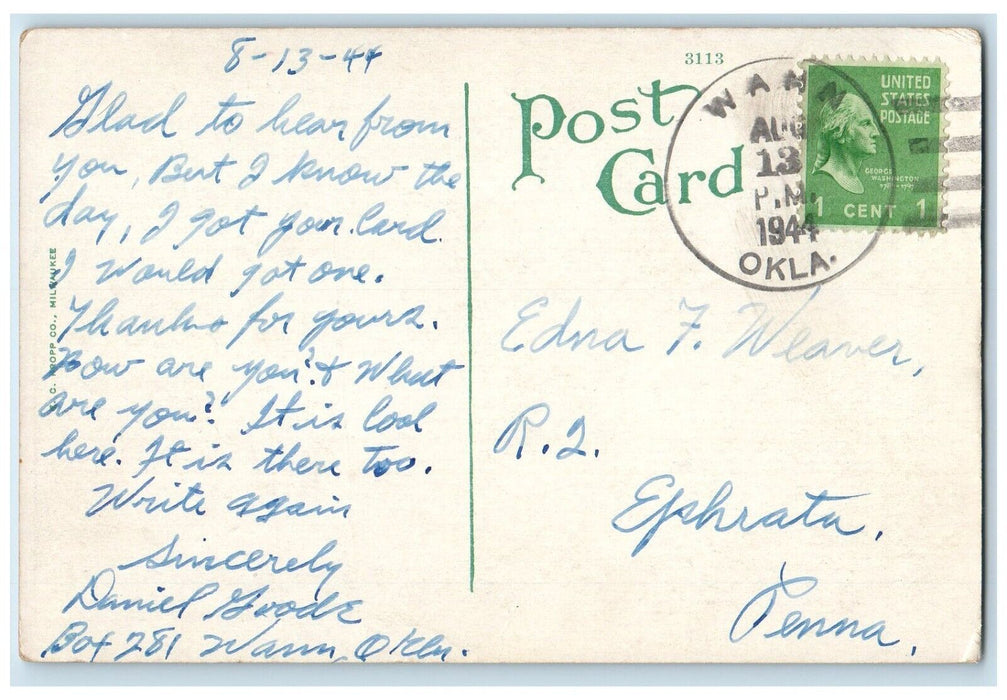 8-13-44
Glad to hear from
you, But I know the
day, I got your Card
I Would got one.
Thanks for yours.
How are you? & What
are you? It is Cool
here. It is there Too.
Write again
Sincerely
Daniel Goode
Box 281 Wann, Okla.
CO., MILWAUKEE
3113
Post
Card
WANN
AUG
13
P.M.
1944
OKLA.
UNITED
STATES
POSTAGE
GEORGE
WASHINGTON
1 CENT 1
Edna F. Weaver,
R.2.
Ephrata,
Penna,